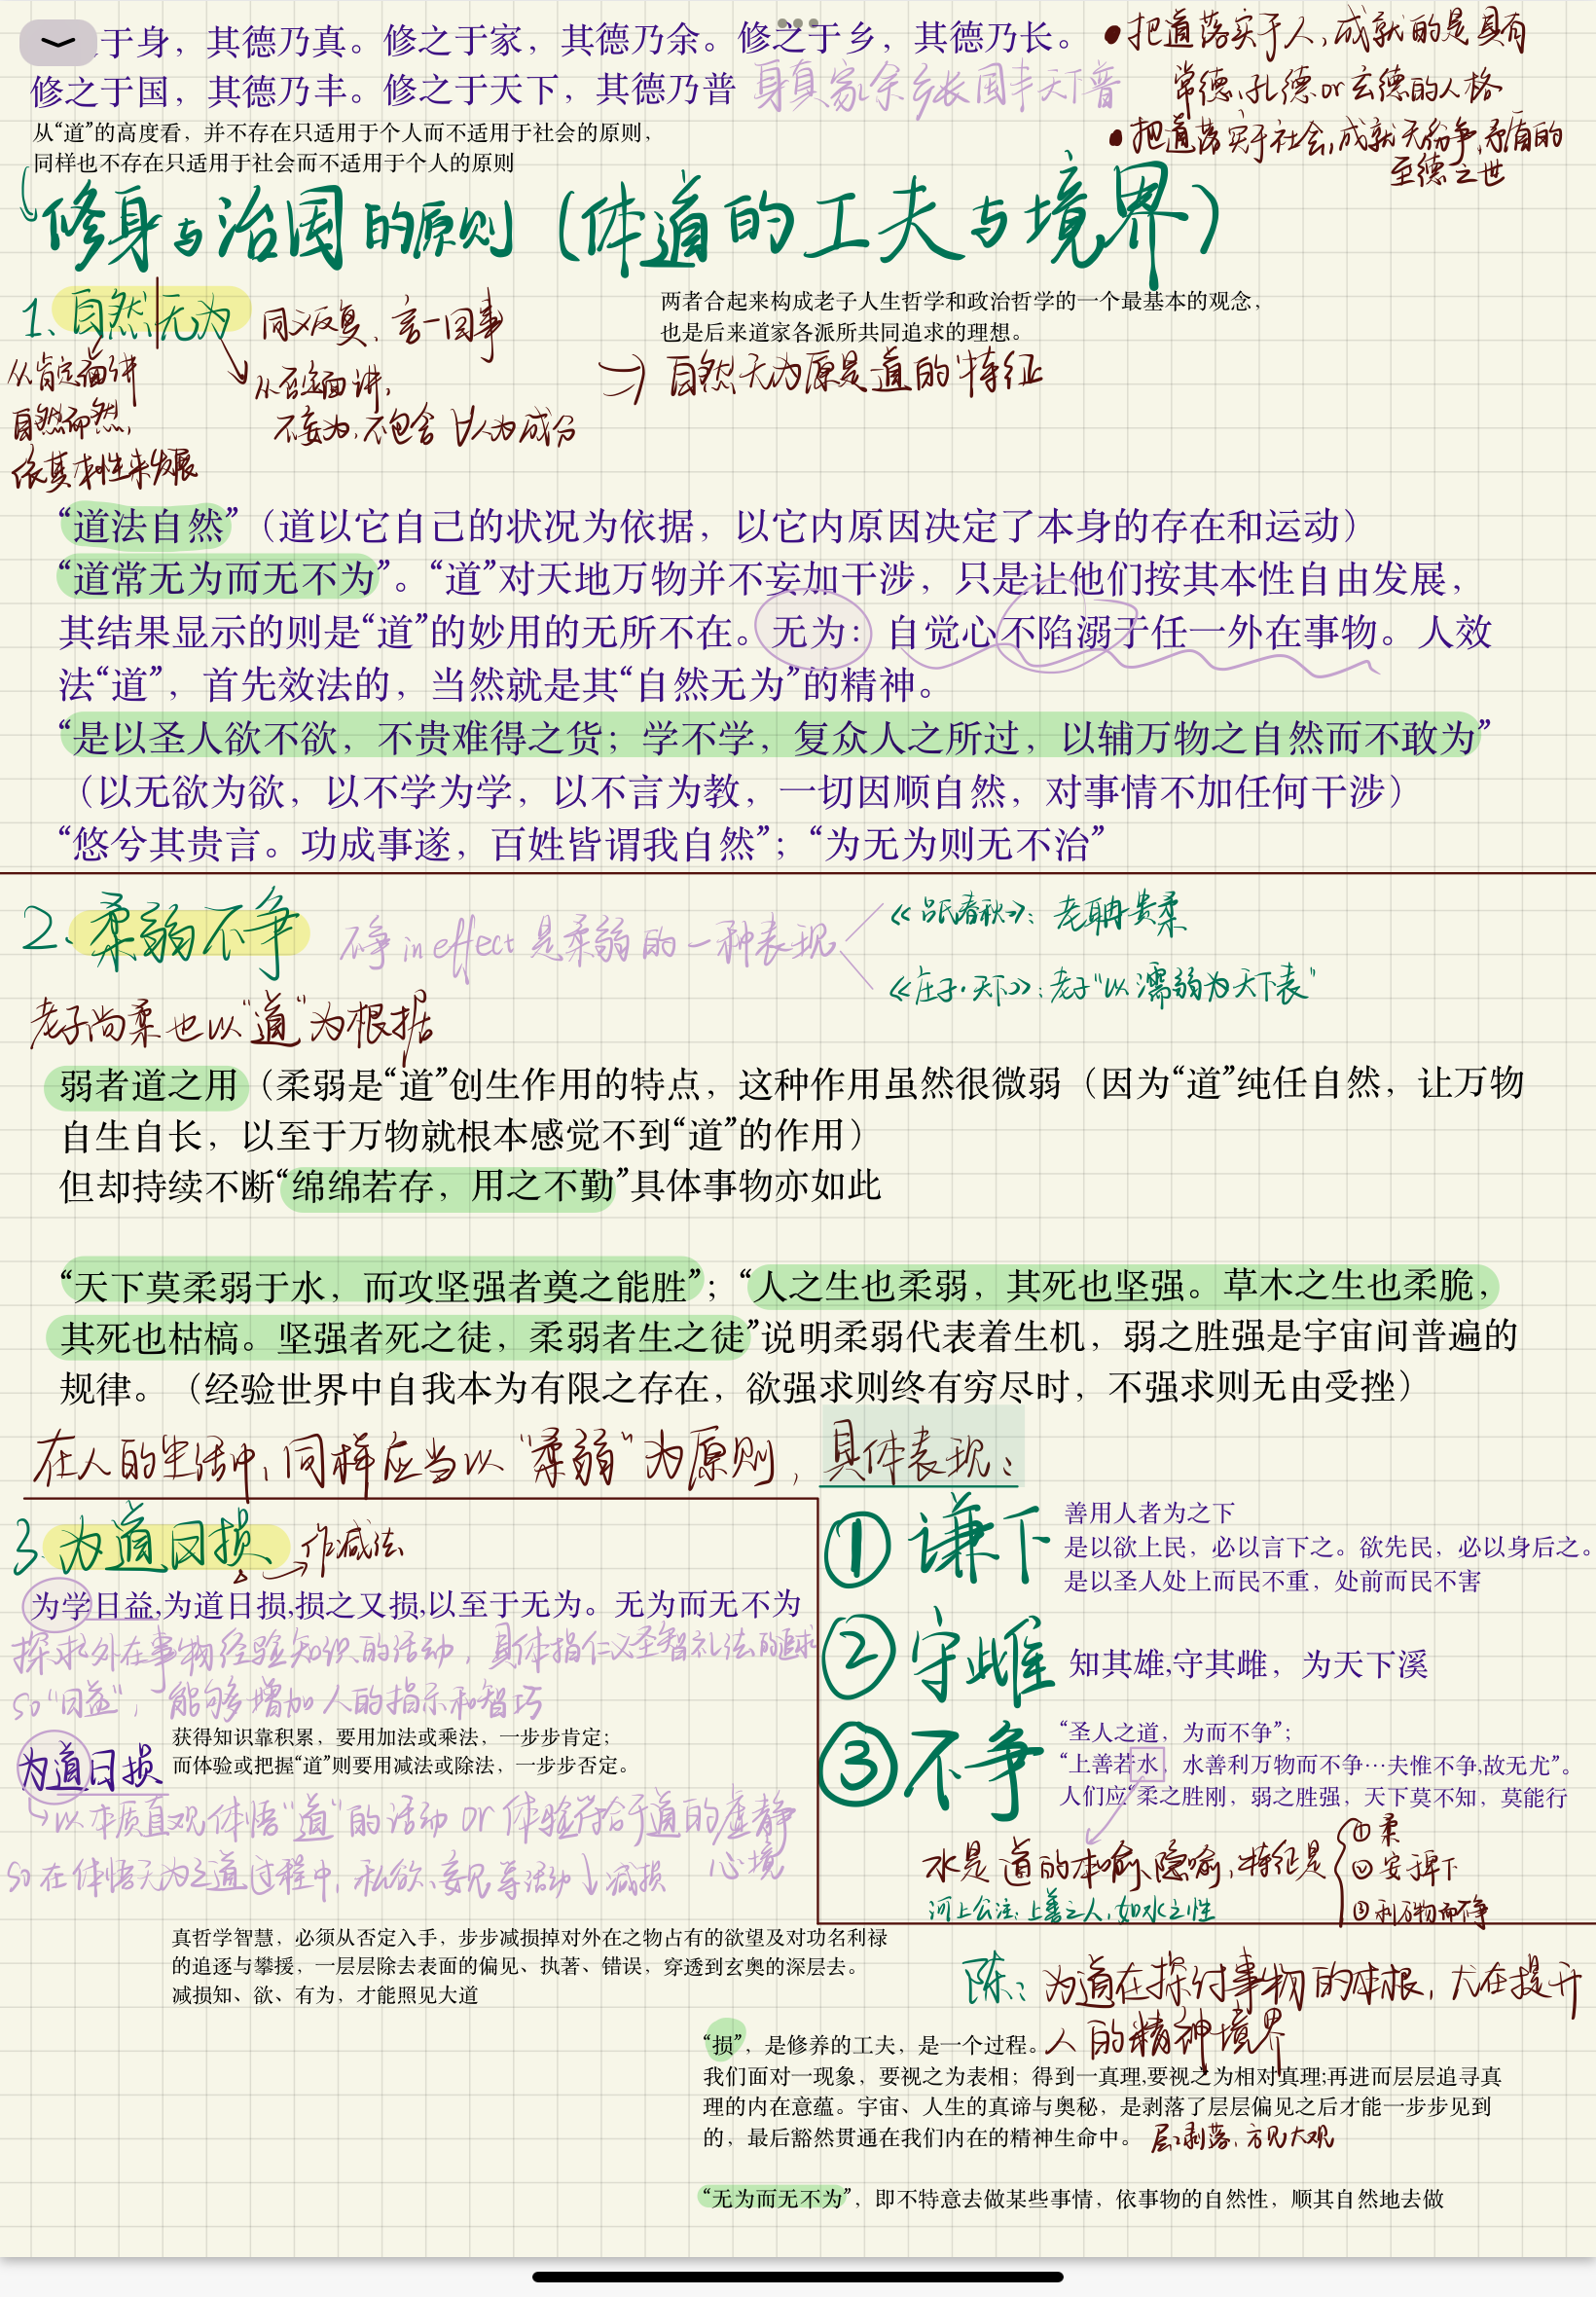 于身，其德乃真。修之于家，其德乃余。修之于乡，其德乃长。
修之于国，其德乃丰。修之于天下，其德乃普
身真家余乡长国丰天下普
从“道”的高度看，并不存在只适用于个人而不适用于社会的原则，
同样也不存在只适用于社会而不适用于个人的原则
把道落实于人，成就的是具有
常德、孔德or玄德的人格
把道落实于社会，成就无纷争、矛盾的
至德之世
修身与治国的原则（体道的工夫与境界）
1、自然|无为
同义反复、言一回事
从肯定面讲
自然而然，
依其本性来发展
从否定面讲，
不妄为，不包含人为成分
两者合起来构成老子人生哲学和政治哲学的一个最基本的观念，
也是后来道家各派所共同追求的理想。
自然无为原是道的特征
“道法自然”（道以它自己的状况为依据，以它内原因决定了本身的存在和运动）
“道常无为而无不为”。“道”对天地万物并不妄加干涉，只是让他们按其本性自由发展，
其结果显示的则是“道”的妙用的无所不在。无为：自觉心不陷溺于任一外在事物。人效
法“道”，首先效法的，当然就是其“自然无为”的精神。
“是以圣人欲不欲，不贵难得之货；学不学，复众人之所过，以辅万物之自然而不敢为”
（以无欲为欲，以不学为学，以不言为教，一切因顺自然，对事情不加任何干涉）
“悠兮其贵言。功成事遂，百姓皆谓我自然”；“为无为则无不治”
2、柔弱不争
不争 in effect 是柔弱的一种表现
《吕氏春秋》：老聃贵柔
《庄子·天下》：老子“以濡弱为天下表”
老子尚柔也以“道”为根据
弱者道之用（柔弱是“道”创生作用的特点，这种作用虽然很微弱（因为“道”纯任自然，让万物
自生自长，以至于万物就根本感觉不到“道”的作用）
但却持续不断“绵绵若存，用之不勤”具体事物亦如此
“天下莫柔弱于水，而攻坚强者奠之能胜”；“人之生也柔弱，其死也坚强。草木之生也柔脆，
其死也枯槁。坚强者死之徒，柔弱者生之徒”说明柔弱代表着生机，弱之胜强是宇宙间普遍的
规律。（经验世界中自我本为有限之存在，欲强求则终有穷尽时，不强求则无由受挫）
在人的生活中，同样应当以“柔弱”为原则，具体表现：
① 谦下
善用人者为之下
是以欲上民，必以言下之。欲先民，必以身后之。
是以圣人处上而民不重，处前而民不害
② 守雌
知其雄,守其雌，为天下溪
③ 不争
“圣人之道，为而不争”；
“上善若水，水善利万物而不争…夫惟不争,故无尤”。
人们应“柔之胜刚，弱之胜强，天下莫不知，莫能行
水是道的本喻、隐喻，特征是
①柔
②安卑下
③利万物而不争
河上公注：上善之人，如水之性
3、为道日损
作减法
为学日益,为道日损,损之又损,以至于无为。无为而无不为
探求外在事物经验知识的活动，具体指仁义圣智礼法的追求
so“日益”，能够增加人的指示和智巧
为道日损
获得知识靠积累，要用加法或乘法，一步步肯定；
而体验或把握“道”则要用减法或除法，一步步否定。
以本质直观体悟“道”的活动or体验符合于道的虚静
心境
so在体悟无为之道过程中，私欲、妄见等活动↓减损
真哲学智慧，必须从否定入手，步步减损掉对外在之物占有的欲望及对功名利禄
的追逐与攀援，一层层除去表面的偏见、执著、错误，穿透到玄奥的深层去。
减损知、欲、有为，才能照见大道
陈：为道在探讨事物的本根，尤在提升
人的精神境界
“损”，是修养的工夫，是一个过程。
我们面对一现象，要视之为表相；得到一真理,要视之为相对真理;再进而层层追寻真
理的内在意蕴。宇宙、人生的真谛与奥秘，是剥落了层层偏见之后才能一步步见到
的，最后豁然贯通在我们内在的精神生命中。
层层剥落，方见大观
“无为而无不为”，即不特意去做某些事情，依事物的自然性，顺其自然地去做